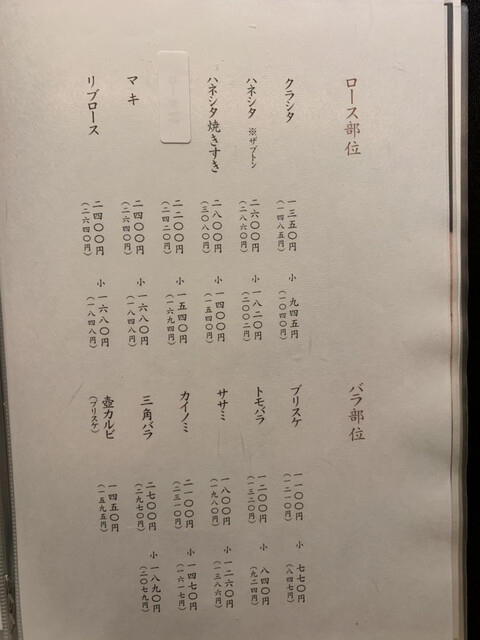 ロース部位
クラシタ 一三五〇円 小 九四五円
(一四八五円) (一〇四〇円)
ハネシタ ※ザブトン 二六〇〇円 小 一八二〇円
(二八六〇円) (二〇〇二円)
ハネシタ焼きすき 二八〇〇円 小 一四〇〇円
(三〇八〇円) (一五四〇円)
二二〇〇円 小 一五四〇円
(二四二〇円) (一六九四円)
マキ 二四〇〇円 小 一六八〇円
(二六四〇円) (一八四八円)
リブロース 二四〇〇円 小 一六八〇円
(二六四〇円) (一八四八円)
バラ部位
ブリスケ 一一〇〇円 小 七七〇円
(一二一〇円) (八四七円)
トモバラ 一二〇〇円 小 八四〇円
(一三二〇円) (九二四円)
ササミ 一八〇〇円 小 一二六〇円
(一九八〇円) (一三八六円)
カイノミ 二一〇〇円 小 一四七〇円
(二三一〇円) (一六一七円)
三角バラ 二七〇〇円 小 一八九〇円
(二九七〇円) (二〇七九円)
壺カルビ 一四五〇円
(ブリスケ) (一五九五円)